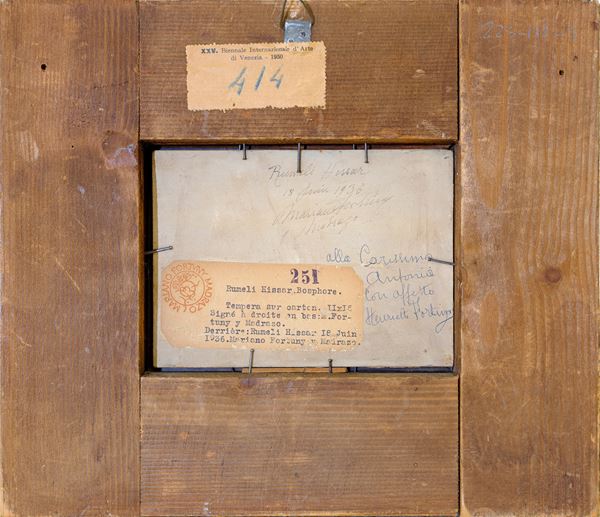 XXV. Biennale Internazionale d'Arte
di Venezia - 1950
414
Rumeli Hissar
18 Juin 1936
Mariano Fortuny
y Madrazo
alla Carissima
Antonia
con affetto
Henriette Fortuny
MARIANO FORTUNY Y MADRAZO
251
Rumeli Hissar.Bosphore.
Tempera sur carton. 11x16
Signé à droite en bas:M.For-
tuny y Madraso.
Derrière:Rumeli Hissar 18 Juin
1936.Mariano Fortuny y Madraso.